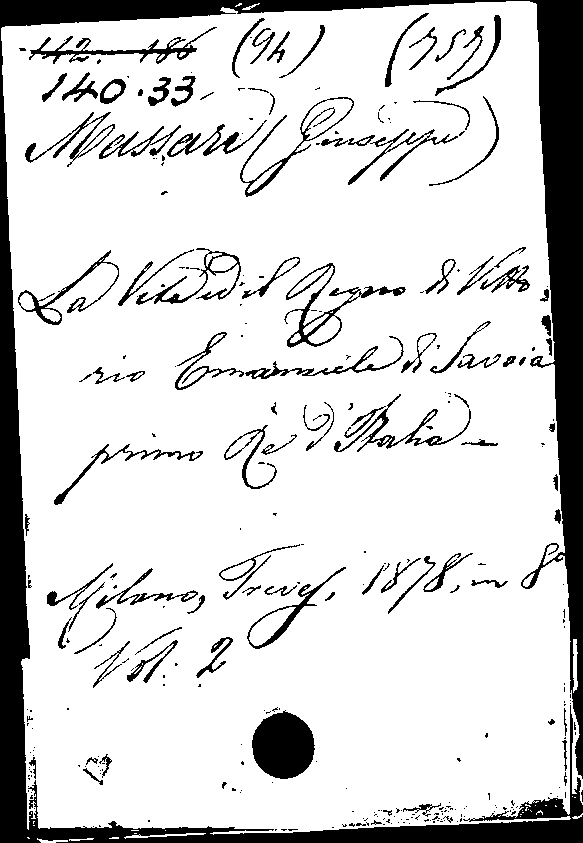 142. 186 (94) (757)
140.33.
Massari (Giuseppe)
La Vita ed il Regno di Vitto
rio Emanuele di Savoia
primo Re d'Italia
Milano, Treves, 1878, in 8º
Vol. 2